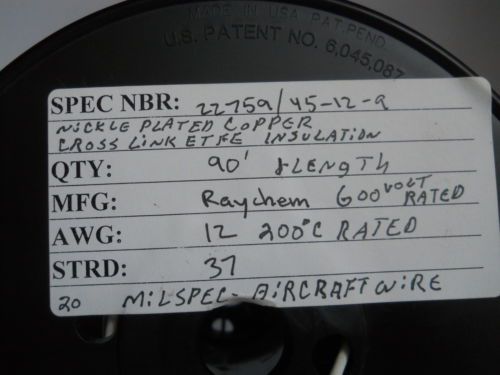 MADE IN USA PAT. PEND.
U.S. PATENT NO. 6,045,087
SPEC NBR: 22759/45-12-9
NICKLE PLATED COPPER
CROSS LINK ETFE INSULATION
QTY: 90' 1 LENGTH
MFG: Raychem 600 VOLT RATED
AWG: 12 200°C RATED
STRD: 37
20 MILSPEC- AIRCRAFT WIRE